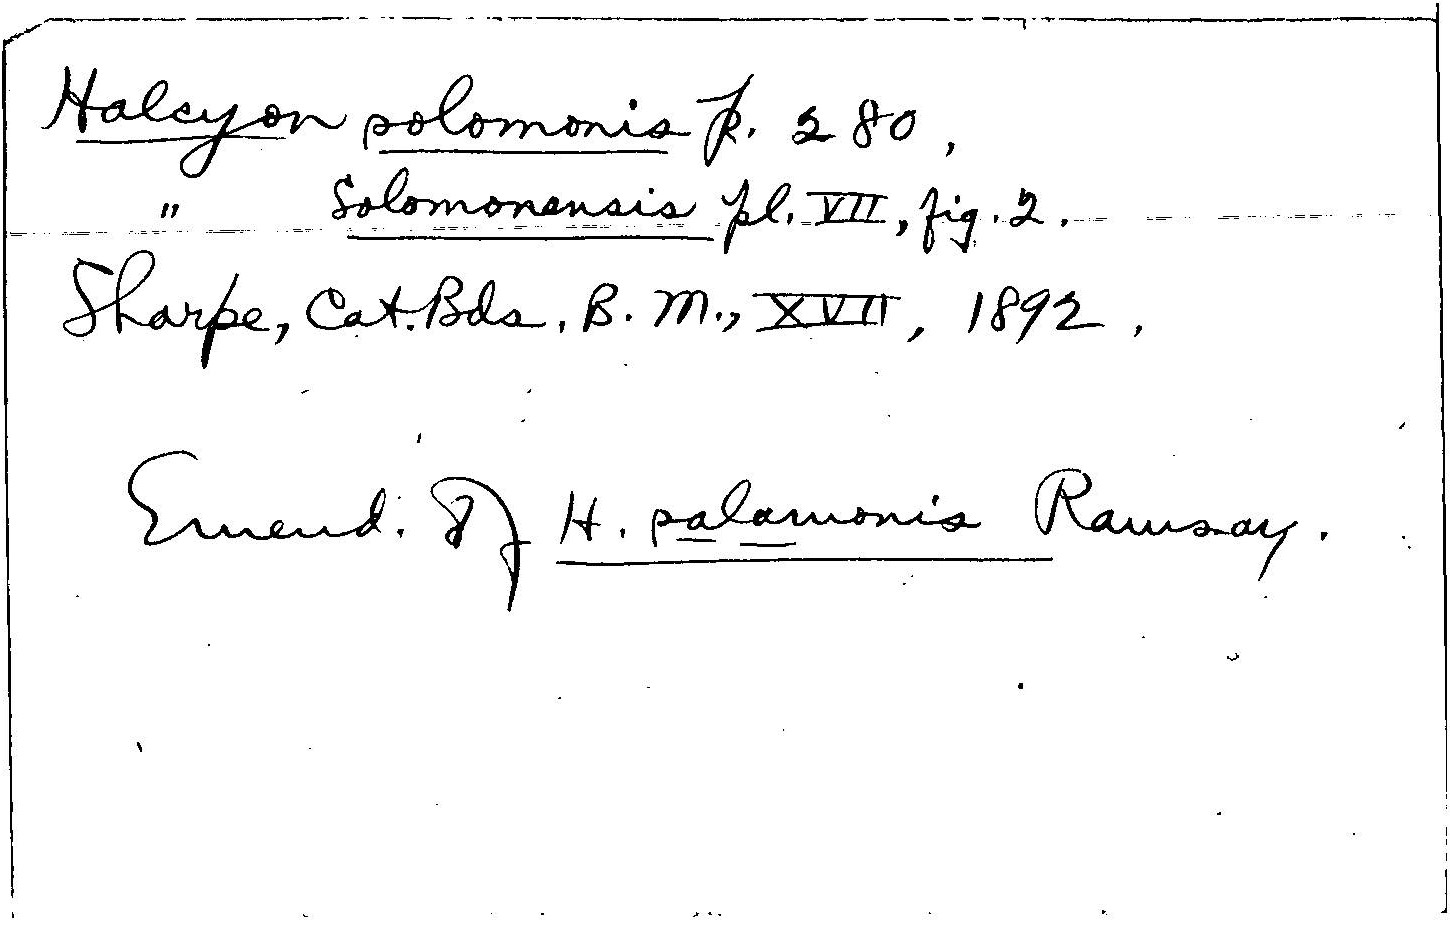 Halcyon solomonis p. 280,
" Solomonensis pl. VII, fig. 2.
Sharpe, Cat. Bds. B. M., XVII, 1892,
Emend. of H. salamonis Ramsay.